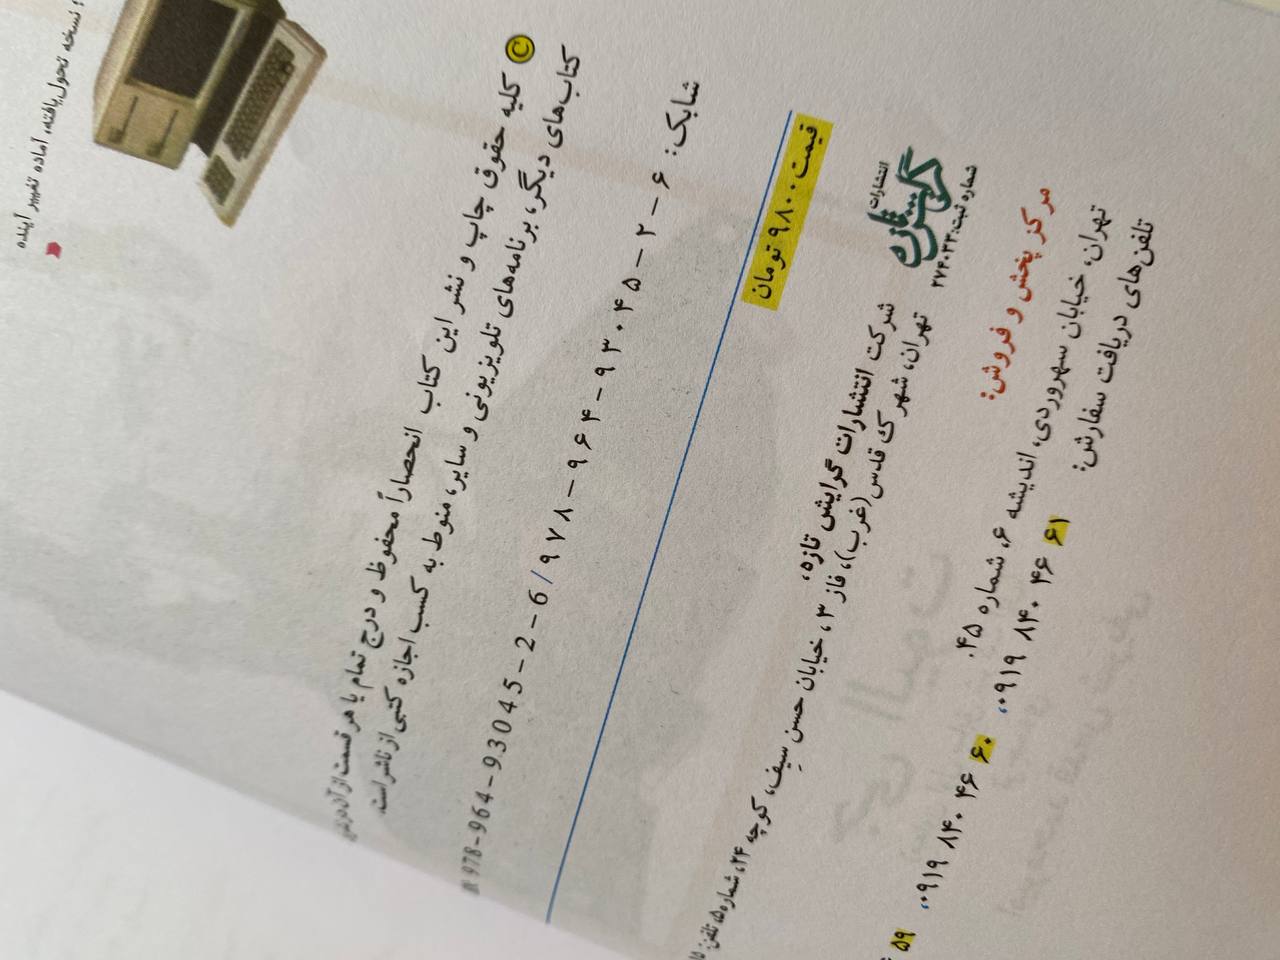 نسخه تحول‌یافته، آماده تغییر آینده
© کلیه حقوق چاپ و نشر این کتاب انحصاراً محفوظ و درج تمام یا هر قسمت از آن در
کتاب‌های دیگر، برنامه‌های تلویزیونی و سایر، منوط به کسب اجازه کتبی از ناشر است.
شابک: ۶-۲-۹۳۰۴۵-۹۶۴-۹۷۸/978-964-93045-2-6
قیمت ۹۸۰۰ تومان
انتشارات
گرایش تازه
شماره ثبت: ۲۷۴۰۳۳
شرکت انتشارات گرایش تازه،
تهران، شهرک قدس(غرب)، فاز ۳، خیابان حسن سیف، کوچه ۲۴، شماره ۵، تلفن:
مرکز پخش و فروش:
تهران، خیابان سهروردی، اندیشه ۶، شماره ۴۵.
تلفن‌های دریافت سفارش:
۶۱ ۴۶ ۸۴۰ ۰۹۱۹، ۶۰ ۴۶ ۸۴۰ ۰۹۱۹، ۵۹